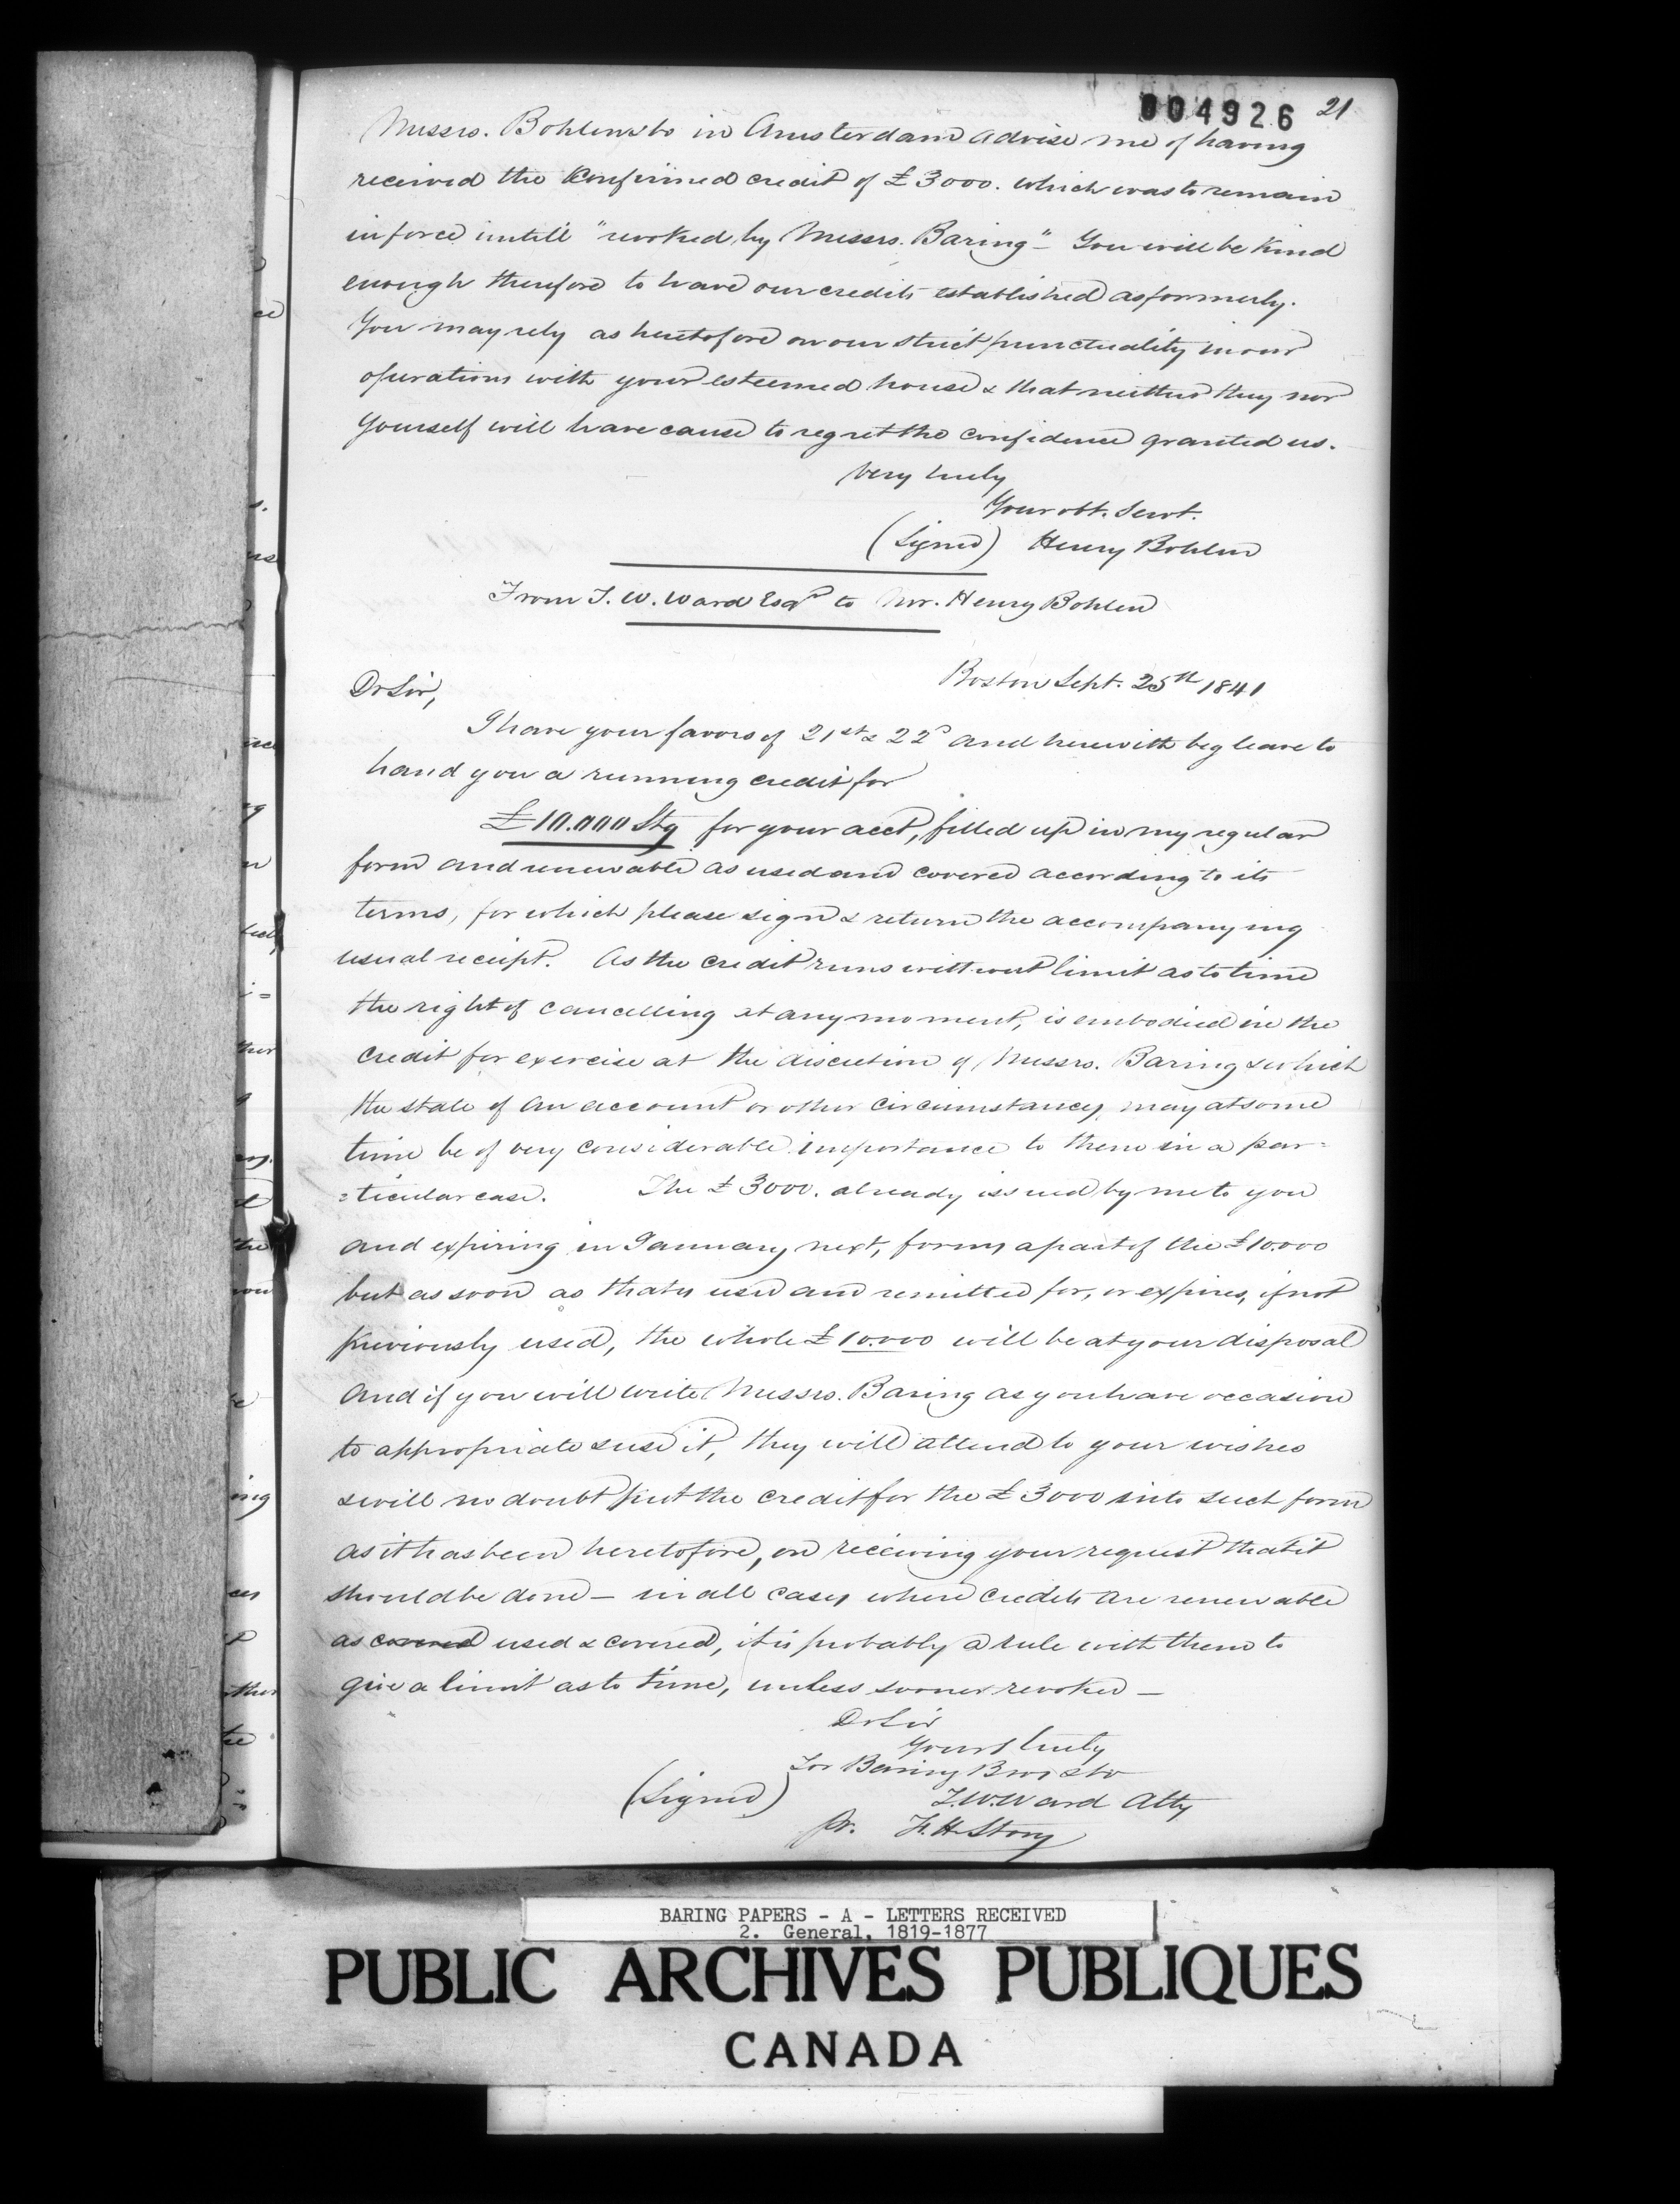 004926 21
Messrs. Bohlen & Co in Amsterdam advise me of having
received the Konfirmed credit of £3000. which was to remain
in force untill "revoked by Messrs. Baring" – You will be kind
enough therefore to have our credits established as formerly.
You may rely as heretofore on our strict punctuality in our
operations with your esteemed house & that neither they nor
yourself will have cause to regret the confidence granted us.
Very truly
Your obt. Servt.
(Signed) Henry Bohlen
From T. W. Ward Esqr to Mr. Henry Bohlen
Boston Sept. 25th 1841
Dr Sir,
I have your favors of 21st & 22d and herewith beg leave to
hand you a running credit for
£10.000 Stg for your acct, filled up in my regular
form and renewable as used and covered according to its
terms, for which please sign & return the accompanying
usual receipt. As the credit runs without limit as to time
the right of cancelling at any moment, is embodied in the
credit for exercise at the discretion of Messrs. Baring & which
the state of an account or other circumstances, may at some
time be of very considerable importance to them in a par=
=ticular case. The £3000. already issued by me to you
and expiring in January next, forms a part of the £10.000
but as soon as that is used and remitted for, or expires, if not
previously used, the whole £10.000 will be at your disposal
and if you will write Messrs. Baring as you have occasion
to appropriate & use it, they will attend to your wishes
& will no doubt put the credit for the £3000 into such form
as it has been heretofore, on receiving your request that it
should be done – in all cases where credits are renewable
as covered used & covered, it is probably a rule with them to
give a limit as to time, unless sooner revoked –
Dr Sir
Yours truly
For Baring Bros & Co
(Signed) T. W. Ward Atty
pr. F. H. Story
BARING PAPERS - A - LETTERS RECEIVED
2. General, 1819-1877
PUBLIC ARCHIVES PUBLIQUES
CANADA